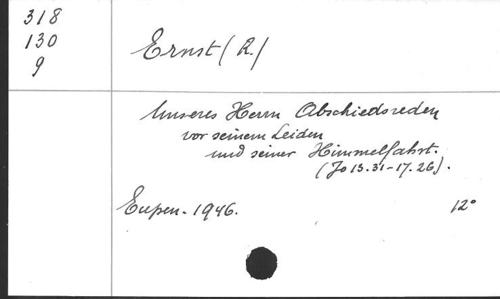 318
130
9
Ernst (R.)
Unseres Herrn Abschiedsreden
vor seinem Leiden
und seiner Himmelfahrt.
(Jo 13.31-17.26).
Eupen. 1946.
12°